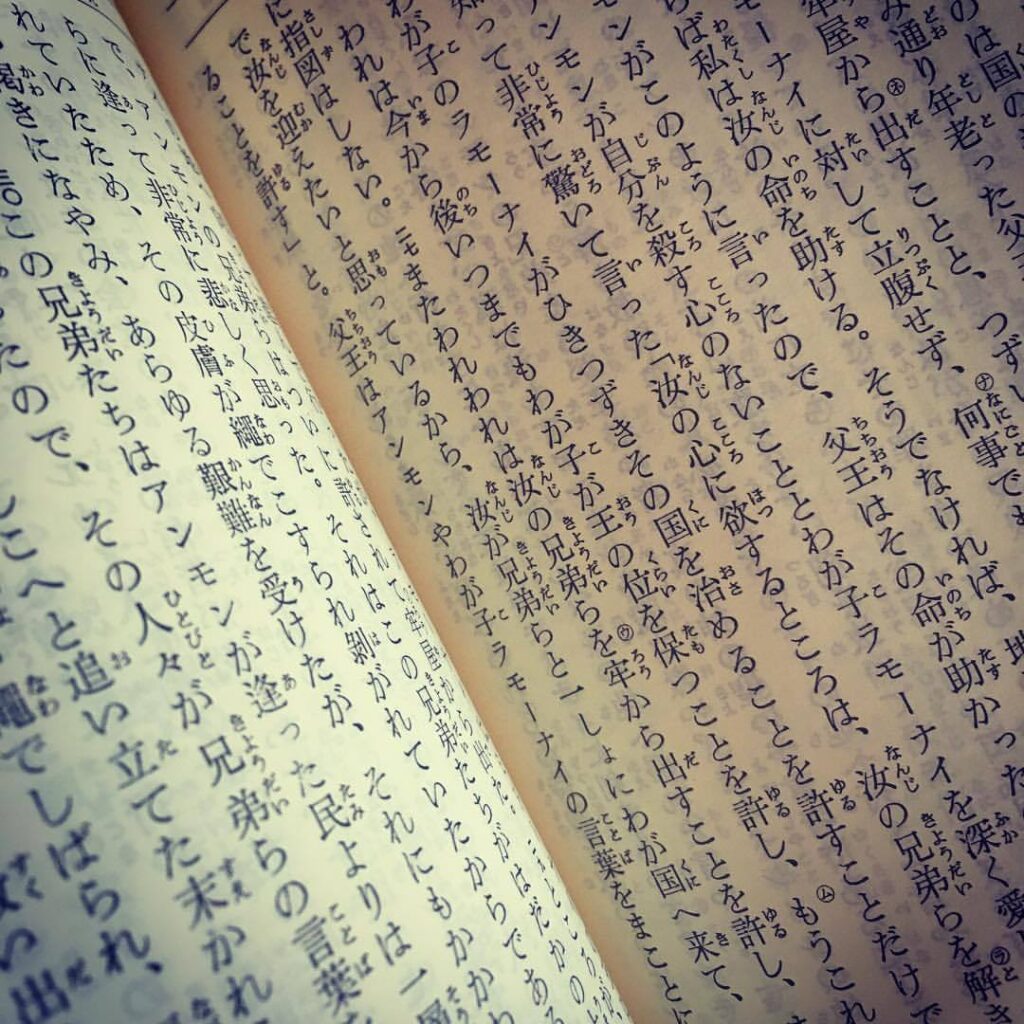 のは国の
み通り年老った父王
牢屋から㋭出すことと、つずし
モーナイに対して立腹せず、㋤何事でも
らば私は汝の命を助ける。そうでなければ、地
ンモンがこのように言ったので、父王はその命が助かった
ンモンが自分を殺す心のないこととわが子ラモーナイを深く愛し
知って非常に驚いて言った「汝の心に欲するところは、汝の兄弟らを解き
わが子のラモーナイがひきつずきその国を治めることを許すことだけで
われは今から後いつまでもわが子が王の位を保つことを許し、㋰もうこれ
に指図はしない。二七またわれわれは汝の兄弟らを㋒牢から出すことを許し、
で汝を迎えたいと思っているから、汝が兄弟らと一しょにわが国へ来て、
ることを許す」と。父王はアンモンやわが子ラモーナイの言葉をまことに
で、アンモンの兄弟らはついに許されて牢屋から出た。
らに逢って非常に悲しく思った。それはこの兄弟たちがはだかであ
れていたため、その皮膚が繩でこすられ剝がれていたからである
渇きになやみ、あらゆる艱難を受けたが、それにもかかわ
三〇この兄弟たちはアンモンが逢った民よりは一層
たので、その人々が兄弟らの言葉を
こへと追い立てた末かれ
繩でしばられ、
い出